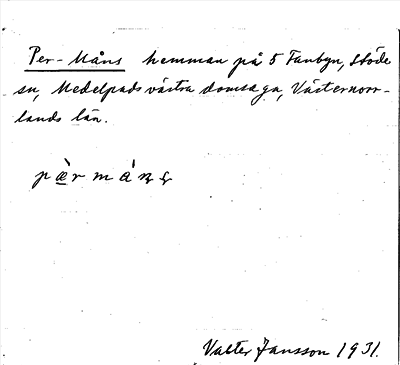 Per-Måns hemman på 5 Fanbyn, Stöde
sn, Medelpads västra domsaga, Västernorr-
lands län.
Valter Jansson 1931.